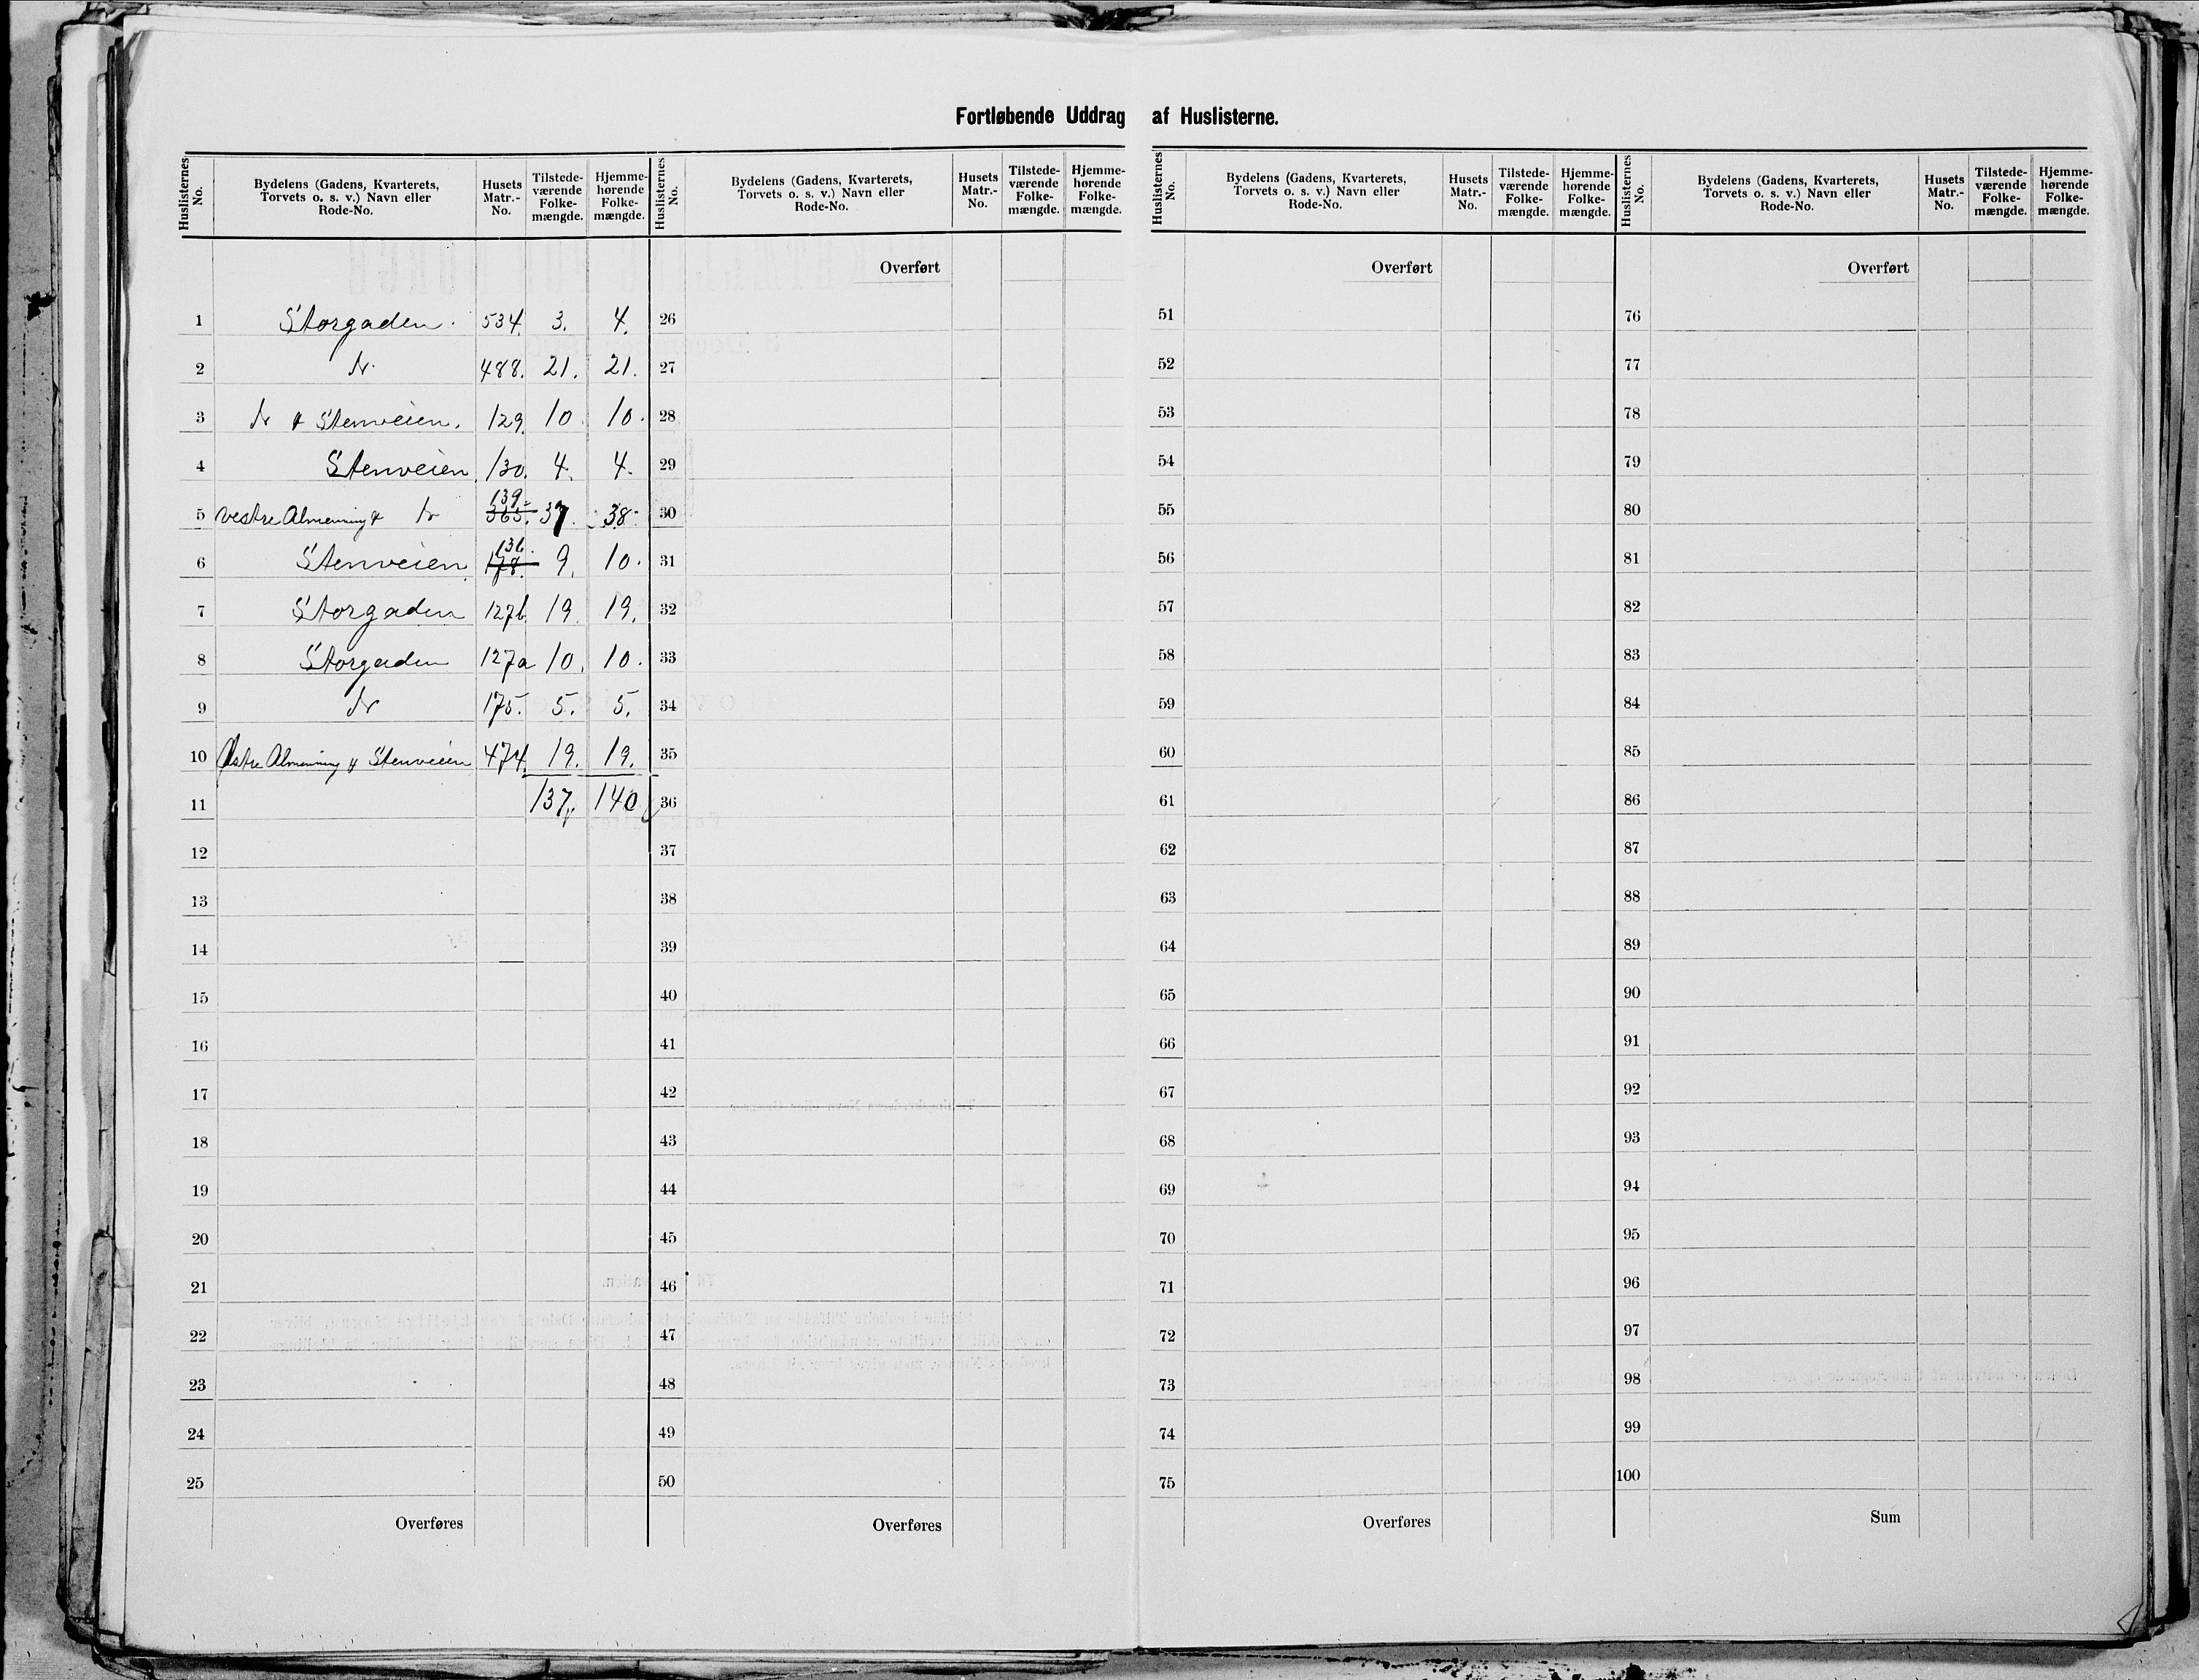 Fortløbende Uddrag af Huslisterne.
Huslisternes No. Bydelens (Gadens, Kvarterets, Torvets o. s. v.) Navn eller Rode-No. Husets Matr.-No. Tilstede-værende Folke-mængde. Hjemme-hørende Folke-mængde.
Huslisternes No. Bydelens (Gadens, Kvarterets, Torvets o. s. v.) Navn eller Rode-No. Husets Matr.-No. Tilstede-værende Folke-mængde. Hjemme-hørende Folke-mængde.
Huslisternes No. Bydelens (Gadens, Kvarterets, Torvets o. s. v.) Navn eller Rode-No. Husets Matr.-No. Tilstede-værende Folke-mængde. Hjemme-hørende Folke-mængde.
Huslisternes No. Bydelens (Gadens, Kvarterets, Torvets o. s. v.) Navn eller Rode-No. Husets Matr.-No. Tilstede-værende Folke-mængde. Hjemme-hørende Folke-mængde.
Overført Overført Overført
1 Storgaden. 534. 3. 4. 26 51 76
2 488. 21. 21. 27 52 77
3 & Stenveien. 129. 10. 10. 28 53 78
4 Stenveien. 130. 4. 4. 29 54 79
139.
5 vestre Almenning & 365. 37. 38. 30 55 80
136.
6 Stenveien. 178. 9. 10. 31 56 81
7 Storgaden 127b. 19. 19. 32 57 82
8 Storgaden 127a 10. 10. 33 58 83
9 175. 5. 5. 34 59 84
10 Østre Almenning & Stenveien 474. 19. 19. 35 60 85
11 137 140 36 61 86
12 37 62 87
13 38 63 88
14 39 64 89
15 40 65 90
16 41 66 91
17 42 67 92
18 43 68 93
19 44 69 94
20 45 70 95
21 46 71 96
22 47 72 97
23 48 73 98
24 49 74 99
25 50 75 100
Overføres Overføres Overføres Sum